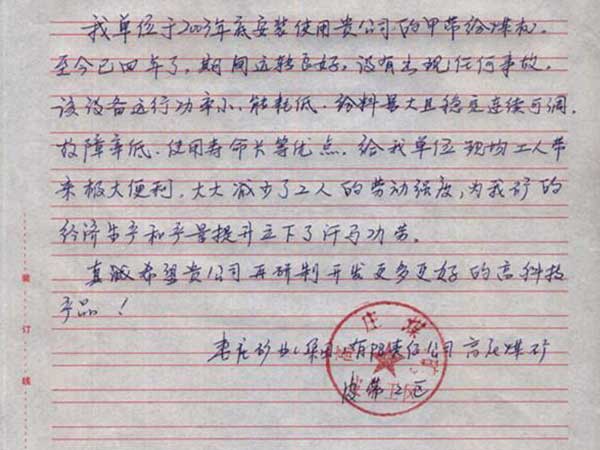 我单位于2003年底安装使用贵公司的甲带给煤机.
至今已四年了，期间运转良好，没有出现任何事故，
该设备运行功率小、能耗低、给料量大且稳定连续可调，
故障率低、使用寿命长等优点，给我单位现场工人带
来极大便利，大大减少了工人的劳动强度，为我矿的
经济生产和产量提升立下了汗马功劳。
真诚希望贵公司再研制开发更多更好的高科技
产品！
枣庄矿业（集团）有限责任公司高庄煤矿
皮带工区
庄煤
装
订
线